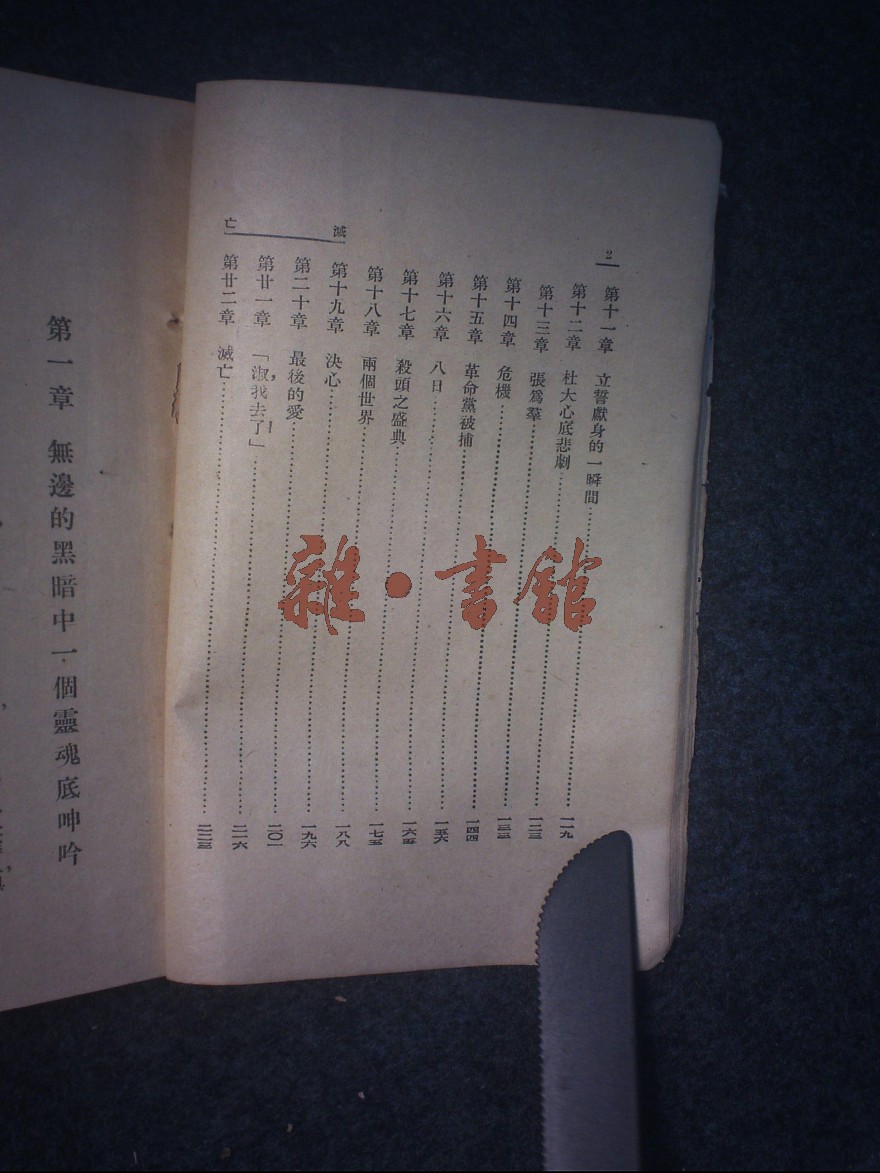 2
第十一章 立誓獻身的一瞬間……一一九
第十二章 杜大心底悲劇……一二三
第十三章 張為羣……一三三
第十四章 危機……一四四
第十五章 革命黨被捕……一五六
第十六章 八日……一六五
第十七章 殺頭之盛典……一七五
第十八章 兩個世界……一八八
第十九章 決心……一九六
第二十章 最後的愛……二〇一
第廿一章 「淑，我去了！」……二一六
第廿二章 滅亡……
滅亡
第一章 無邊的黑暗中一個靈魂底呻吟
雜·書館